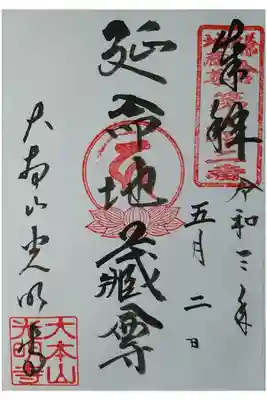 奉拝
令和三年
五月二日
延命地蔵尊
大本山光明寺
大本山
光明寺